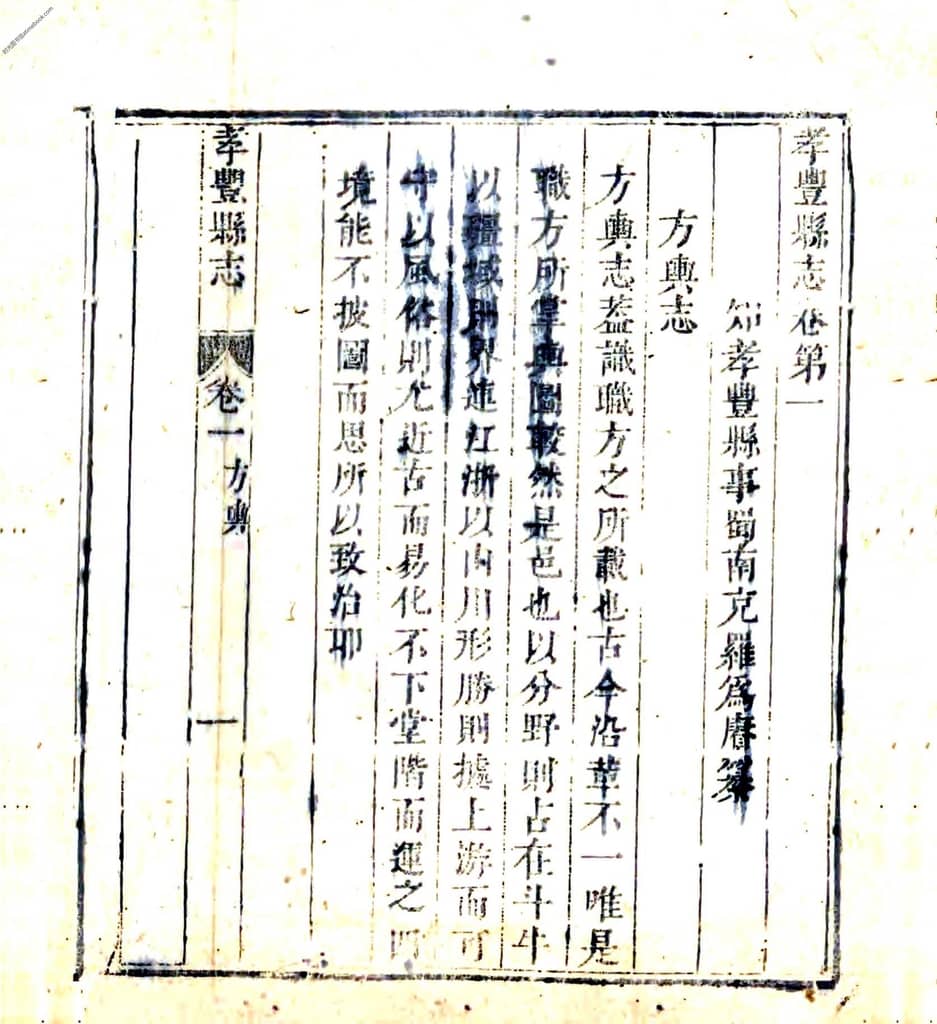 孝豐縣志卷第一
知孝豐縣事蜀南克羅爲賡纂
方輿志
方輿志蓋識職方之所載也古今沿革不一唯是
職方所掌輿圖較然是邑也以分野則占在斗牛
以疆域則界連江浙以山川形勝則據上游而可
守以風俗則尤近古而易化不下堂階而運之四
境能不披圖而思所以致治耶
孝豐縣志
卷一 方輿
一